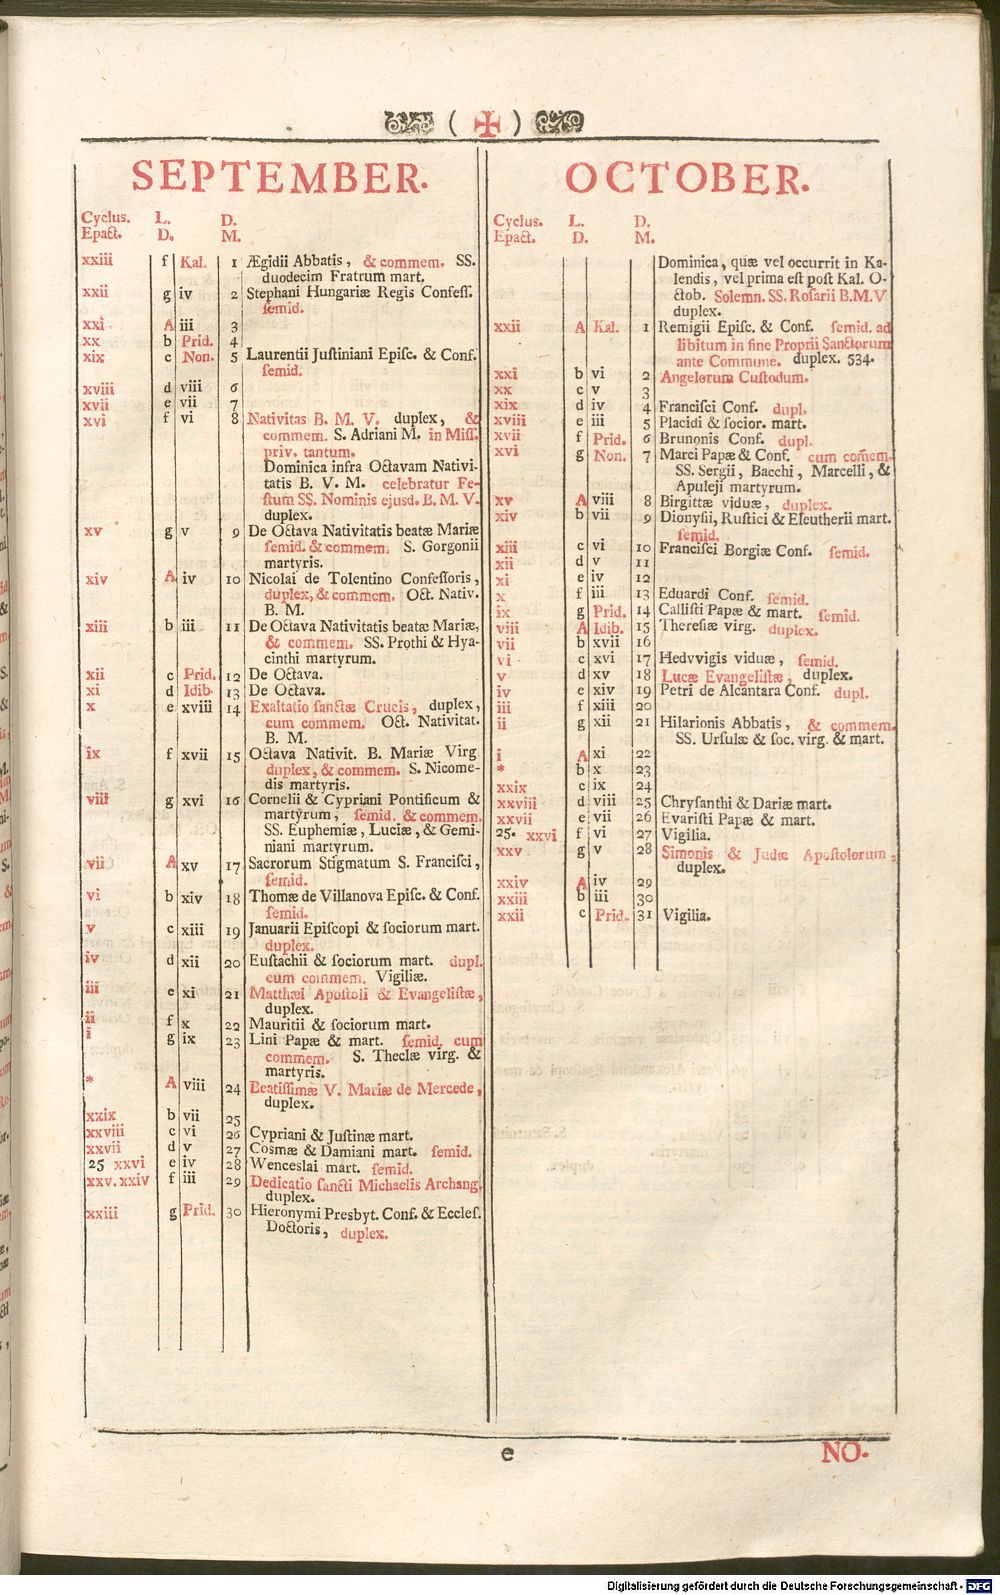 ( ✠ )
SEPTEMBER.
Cyclus. L. D.
Epact. D. M.
xxiii f Kal. 1 Ægidii Abbatis, & commem. SS.
duodecim Fratrum mart.
xxii g iv 2 Stephani Hungariæ Regis Confeſſ.
ſemid.
xxi A iii 3
xx b Prid. 4
xix c Non. 5 Laurentii Juſtiniani Epiſc. & Conf.
ſemid.
xviii d viii 6
xvii e vii 7
xvi f vi 8 Nativitas B. M. V. duplex, &
commem. S. Adriani M. in Miſſ.
priv. tantum.
Dominica infra Octavam Nativi-
tatis B. V. M. celebratur Fe-
ſtum SS. Nominis ejusd. B. M. V.
duplex.
xv g v 9 De Octava Nativitatis beatæ Mariæ
ſemid. & commem. S. Gorgonii
martyris.
xiv A iv 10 Nicolai de Tolentino Confeſſoris,
duplex, & commem. Oct. Nativ.
B. M.
xiii b iii 11 De Octava Nativitatis beatæ Mariæ,
& commem. SS. Prothi & Hya-
cinthi martyrum.
xii c Prid. 12 De Octava.
xi d Idib. 13 De Octava.
x e xviii 14 Exaltatio ſanctæ Crucis, duplex,
cum commem. Oct. Nativitat.
B. M.
ix f xvii 15 Octava Nativit. B. Mariæ Virg
duplex, & commem. S. Nicome-
dis martyris.
viii g xvi 16 Cornelii & Cypriani Pontificum &
martyrum, ſemid. & commem.
SS. Euphemiæ, Luciæ, & Gemi-
niani martyrum.
vii A xv 17 Sacrorum Stigmatum S. Franciſci,
ſemid.
vi b xiv 18 Thomæ de Villanova Epiſc. & Conf.
ſemid.
v c xiii 19 Januarii Epiſcopi & ſociorum mart.
duplex.
iv d xii 20 Euſtachii & ſociorum mart. dupl.
cum commem. Vigiliæ.
iii e xi 21 Matthæi Apoſtoli & Evangeliſtæ,
duplex.
ii f x 22 Mauritii & ſociorum mart.
i g ix 23 Lini Papæ & mart. ſemid. cum
commem. S. Theclæ virg. &
martyris.
* A viii 24 Beatiſſimæ V. Mariæ de Mercede,
duplex.
xxix b vii 25
xxviii c vi 26 Cypriani & Juſtinæ mart.
xxvii d v 27 Cosmæ & Damiani mart. ſemid.
25 xxvi e iv 28 Wenceslai mart. ſemid.
xxv. xxiv f iii 29 Dedicatio ſancti Michaelis Archang.
duplex.
xxiii g Prid. 30 Hieronymi Presbyt. Conf. & Eccleſ.
Doctoris, duplex.
OCTOBER.
Cyclus. L. D.
Epact. D. M.
Dominica, quæ vel occurrit in Ka-
lendis, vel prima eſt poſt Kal. O-
ctob. Solemn. SS. Roſarii B.M.V
duplex.
xxii A Kal. 1 Remigii Epiſc. & Conf. ſemid. ad
libitum in fine Proprii Sanctorum
ante Commune. duplex. 534.
xxi b vi 2 Angelorum Cuſtodum.
xx c v 3
xix d iv 4 Franciſci Conf. dupl.
xviii e iii 5 Placidi & ſocior. mart.
xvii f Prid. 6 Brunonis Conf. dupl.
xvi g Non. 7 Marci Papæ & Conf. cum com̃em.
SS. Sergii, Bacchi, Marcelli, &
Apuleji martyrum.
xv A viii 8 Birgittæ viduæ, duplex.
xiv b vii 9 Dionyſii, Ruſtici & Eleutherii mart.
ſemid.
xiii c vi 10 Franciſci Borgiæ Conf. ſemid.
xii d v 11
xi e iv 12
x f iii 13 Eduardi Conf. ſemid.
ix g Prid. 14 Calliſti Papæ & mart. ſemid.
viii A Idib. 15 Thereſiæ virg. duplex.
vii b xvii 16
vi c xvi 17 Hedvvigis viduæ, ſemid.
v d xv 18 Lucæ Evangeliſtæ, duplex.
iv e xiv 19 Petri de Alcantara Conf. dupl.
iii f xiii 20
ii g xii 21 Hilarionis Abbatis, & commem.
SS. Urſulæ & ſoc. virg. & mart.
i A xi 22
* b x 23
xxix c ix 24
xxviii d viii 25 Chryſanthi & Dariæ mart.
xxvii e vii 26 Evariſti Papæ & mart.
25. xxvi f vi 27 Vigilia.
xxv g v 28 Simonis & Judæ Apoſtolorum,
duplex.
xxiv A iv 29
xxiii b iii 30
xxii c Prid. 31 Vigilia.
e
NO-
Digitalisierung gefördert durch die Deutsche Forschungsgemeinschaft - DFG